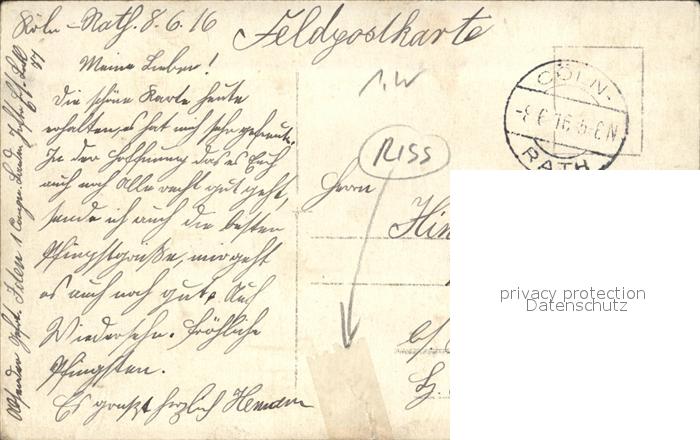 Köln-Rath. 8.6.16
Feldpostkarte
Meine Lieben!
Die schöne Karte heute
erhalten, es hat mich sehr gefreut.
In der Hoffnung das es Euch
auch noch Alle recht gut geht,
sende ich auch die besten
Pfingstgrüße, mir geht
es auch noch gut. Auf
Wiedersehn. Fröhliche
Pfingsten.
Es grüßt herzlich Hermann
Absender
CÖLN-
-8.6.16.5-6N
RATH
RISS
Herrn
Hin
b/
privacy protection
Datenschutz